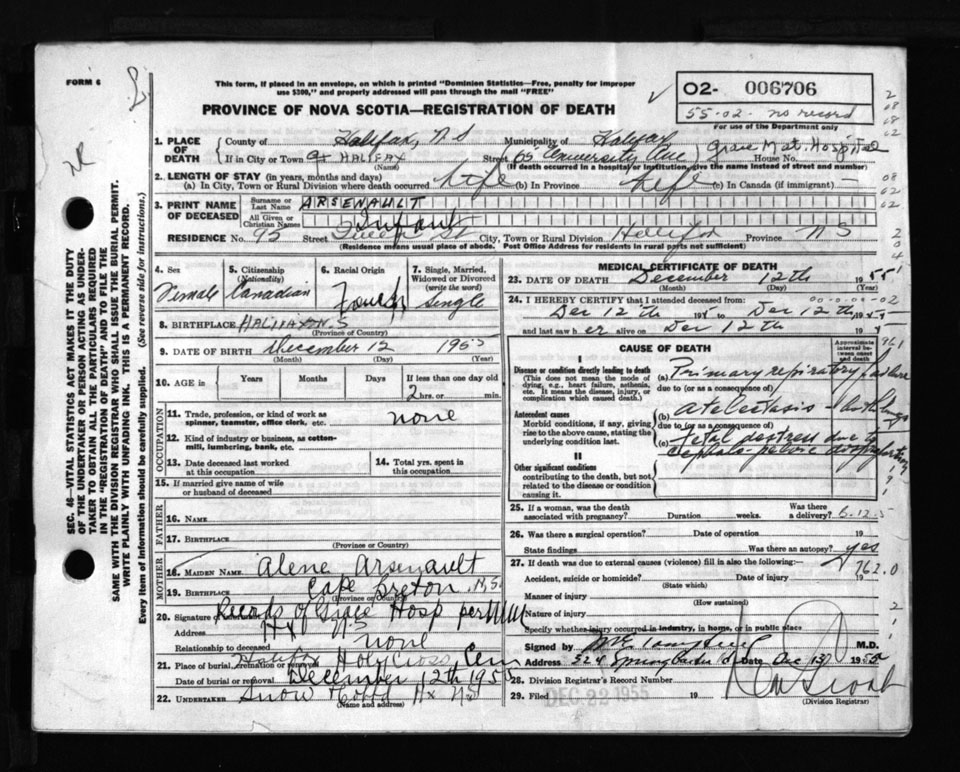 FORM 6
This form, if placed in an envelope, on which is printed "Dominion Statistics—Free, penalty for improper
use $300," and properly addressed will pass through the mail "FREE"
PROVINCE OF NOVA SCOTIA—REGISTRATION OF DEATH
02- 006706
55-02- no record
For use of the Department only
1. PLACE OF DEATH
County of Halifax, N S Municipality of Halifax
If in City or Town of HALIFAX Street 65 University Ave House No. Grace Mat. Hospital
(Name) (If death occurred in a hospital or institution, give the name instead of street and number)
2. LENGTH OF STAY (in years, months and days)
(a) In City, Town or Rural Division where death occurred Life (b) In Province Life (c) In Canada (if immigrant) —
3. PRINT NAME OF DECEASED
Surname or Last Name ARSENAULT
All Given or Christian Names Infant
RESIDENCE No. 95 Street City, Town or Rural Division Halifax Province N S
(Residence means usual place of abode. Post Office Address for residents in rural parts not sufficient)
4. Sex
Female
5. Citizenship (Nationality)
Canadian
6. Racial Origin
French
7. Single, Married, Widowed or Divorced (write the word)
Single
8. BIRTHPLACE HALIFAX N.S
(Province of Country)
9. DATE OF BIRTH December 12 1955
(Month) (Day) (Year)
10. AGE in Years Months Days If less than one day old
2 hrs. or min.
OCCUPATION
11. Trade, profession, or kind of work as spinner, teamster, office clerk, etc. none
12. Kind of industry or business, as cotton-mill, lumbering, bank, etc.
13. Date deceased last worked at this occupation
14. Total yrs. spent in this occupation
15. If married give name of wife or husband of deceased
FATHER
16. NAME
17. BIRTHPLACE
(Province or Country)
MOTHER
18. MAIDEN NAME Alene Arsenault
19. BIRTHPLACE Cape Breton, N.S.
(Province or Country)
20. Signature of Records of Grace Hosp per
Address Hx N S
Relationship to deceased none
21. Place of burial, cremation or removal Halifax Holy Cross Cem
Date of burial or removal December 12th 1955
22. UNDERTAKER Snow Hx N S
(Name and address)
MEDICAL CERTIFICATE OF DEATH
23. DATE OF DEATH December 12th 1955
(Month) (Day) (Year)
24. I HEREBY CERTIFY that I attended deceased from:
Dec 12th to Dec 12th 1955
and last saw her alive on Dec 12th
CAUSE OF DEATH
Approximate interval between onset and death
I
Disease or condition directly leading to death
(This does not mean the mode of dying, e.g., heart failure, asthenia, etc. It means the disease, injury, or complication which caused death.)
(a) Primary respiratory failure
due to (or as a consequence of)
Antecedent causes
Morbid conditions, if any, giving rise to the above cause, stating the underlying condition last.
(b) atelectasis - both lungs
due to (or as a consequence of)
(c) fetal distress due to
cephalo-pelvic disproportion
II
Other significant conditions
contributing to the death, but not related to the disease or condition causing it.
25. If a woman, was the death associated with pregnancy? Duration weeks. Was there a delivery?
26. Was there a surgical operation? Date of operation 19
State findings Was there an autopsy? yes
27. If death was due to external causes (violence) fill in also the following: 762.0
Accident, suicide or homicide? Date of injury 19
(State which)
Manner of injury
(How sustained)
Nature of injury
Specify whether injury occurred in industry, in home, or in public place
Signed by M.D.
Address 324 Spring Garden Rd Date Dec 13 1955
28. Division Registrar's Record Number
29. Filed DEC 22 1955
(Division Registrar)
SEC. 46—VITAL STATISTICS ACT MAKES IT THE DUTY
OF THE UNDERTAKER OR PERSON ACTING AS UNDER-
TAKER TO OBTAIN ALL THE PARTICULARS REQUIRED
IN THE "REGISTRATION OF DEATH" AND TO FILE THE
SAME WITH THE DIVISION REGISTRAR WHO SHALL ISSUE THE BURIAL PERMIT.
WRITE PLAINLY WITH UNFADING INK. THIS IS A PERMANENT RECORD.
Every item of information should be carefully supplied. (See reverse side for instructions.)